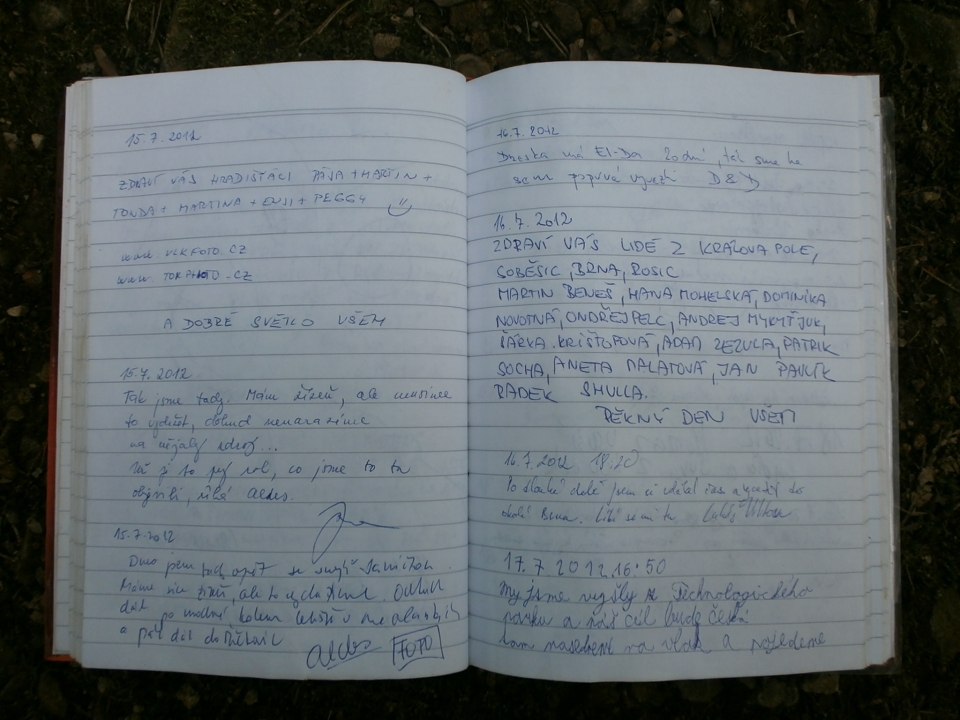 15.7.2012
ZDRAVÍ VÁS HRADIŠŤÁCI PÁJA + MARTIN +
TONDA + MARTINA + ENJI + PEGGY
www. VLKFOTO.CZ
www. TOKPHOTO.CZ
A DOBRÉ SVĚTLO VŠEM
15.7.2012
Tak jsme tady. Máme žízeň, ale musíme
to vydržet, dokud nenarazíme
na nějaký zdroj...
Už je to rok, co jsme to tu
objevili, říká Aldes.
15.7.2012
Dnes jsem tady opět se
Máme žízeň, ale to vydržíme.
dál po modré kolem
a pak dál do
Aldes FOTO
16.7.2012
Dneska má El-Da 20 dní, tak jsme ho
sem poprvé vyvezli D&D
16.7.2012
ZDRAVÍ VÁS LIDÉ Z KRÁLOVA POLE,
SOBĚŠIC, BRNA, ROSIC
MARTIN BENEŠ, HANA MOHELSKÁ, DOMINIKA
NOVOTNÁ, ONDŘEJ PELC, ANDREJ MYKYTJUK,
ŠÁRKA KRIŠTOFOVÁ, ADAM ZEZULA, PATRIK
SOCHA, ANETA MALATOVÁ, JAN PAVLÍK
RADEK SHULLA.
PĚKNÝ DEN VŠEM
16.7.2012 18:20
Po dlouhé době jsem si udělal čas a vyrazil do
okolí Brna. Líbí se mi tu
17.7 2012. 16:50
My jsme vyšly z Technologického
parku a náš cíl bude česká
tam nasedeni na vlak a pojedeme